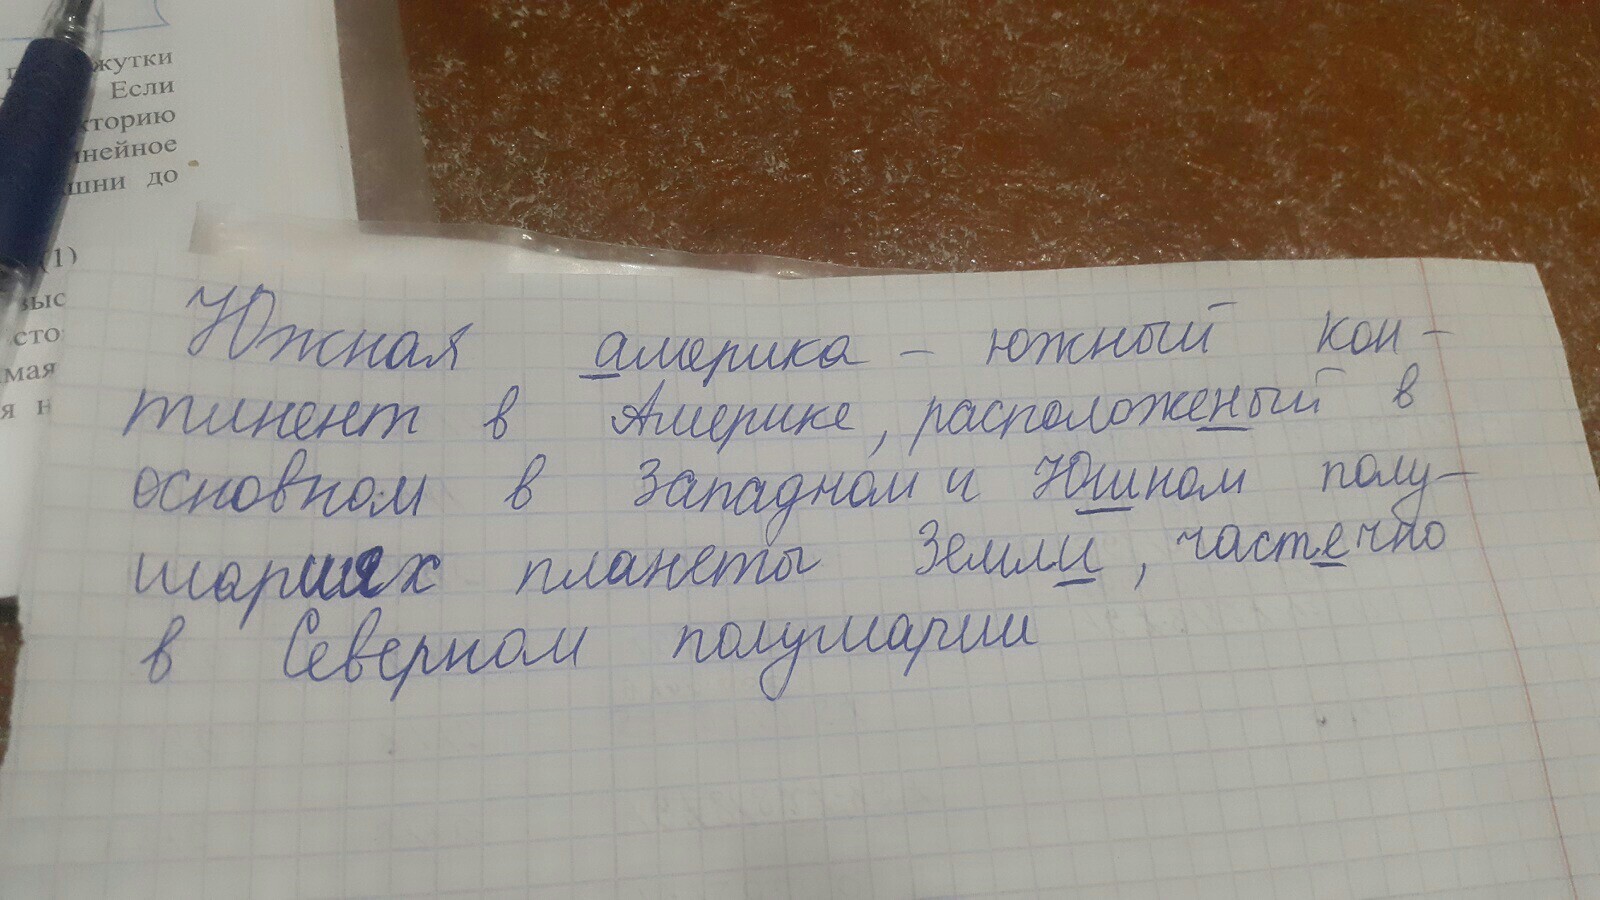 жутки
Если
кторию
нейное
шни до
(1)
выс
сто
мая
я н
Южная америка – южный кон-
тинент в Америке, расположеный в
основном в Западном и Юшном полу-
шариях планеты Земли, частечно
в Северном полушарии